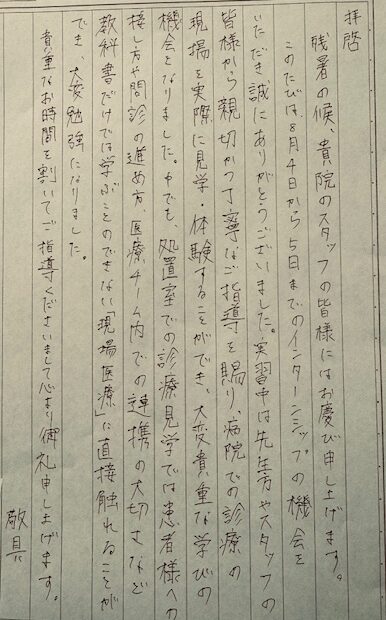 拝啓
残暑の候、貴院のスタッフの皆様にはお慶び申し上げます。
このたびは、8月4日から5日までのインターンシップの機会を
いただき、誠にありがとうございました。実習中は先生方やスタッフの
皆様から親切かつ丁寧なご指導を賜り、病院での診療の
現場を実際に見学・体験することができ、大変貴重な学びの
機会となりました。中でも、処置室での診療見学では患者様への
接し方や問診の進め方、医療チーム内での連携の大切さなど
教科書だけでは学ぶことのできない「現場医療」に直接触れることが
でき、大変勉強になりました。
貴重なお時間を割いてご指導くださいまして心より御礼申し上げます。
敬具